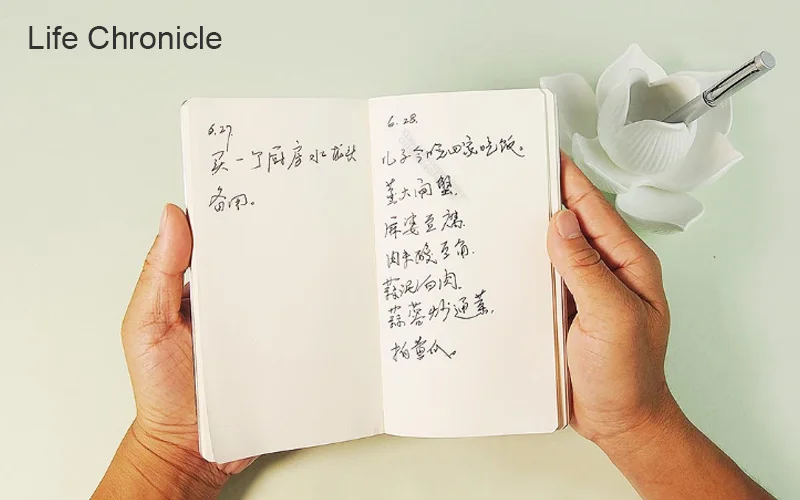 Life Chronicle
6.27.
买一个厨房水龙头
备用。
6.28.
儿子今晚回家吃饭。
蒸大闸蟹.
麻婆豆腐.
肉末酸豆角.
蒜泥白肉.
蒜蓉炒通菜.
拍黄瓜。